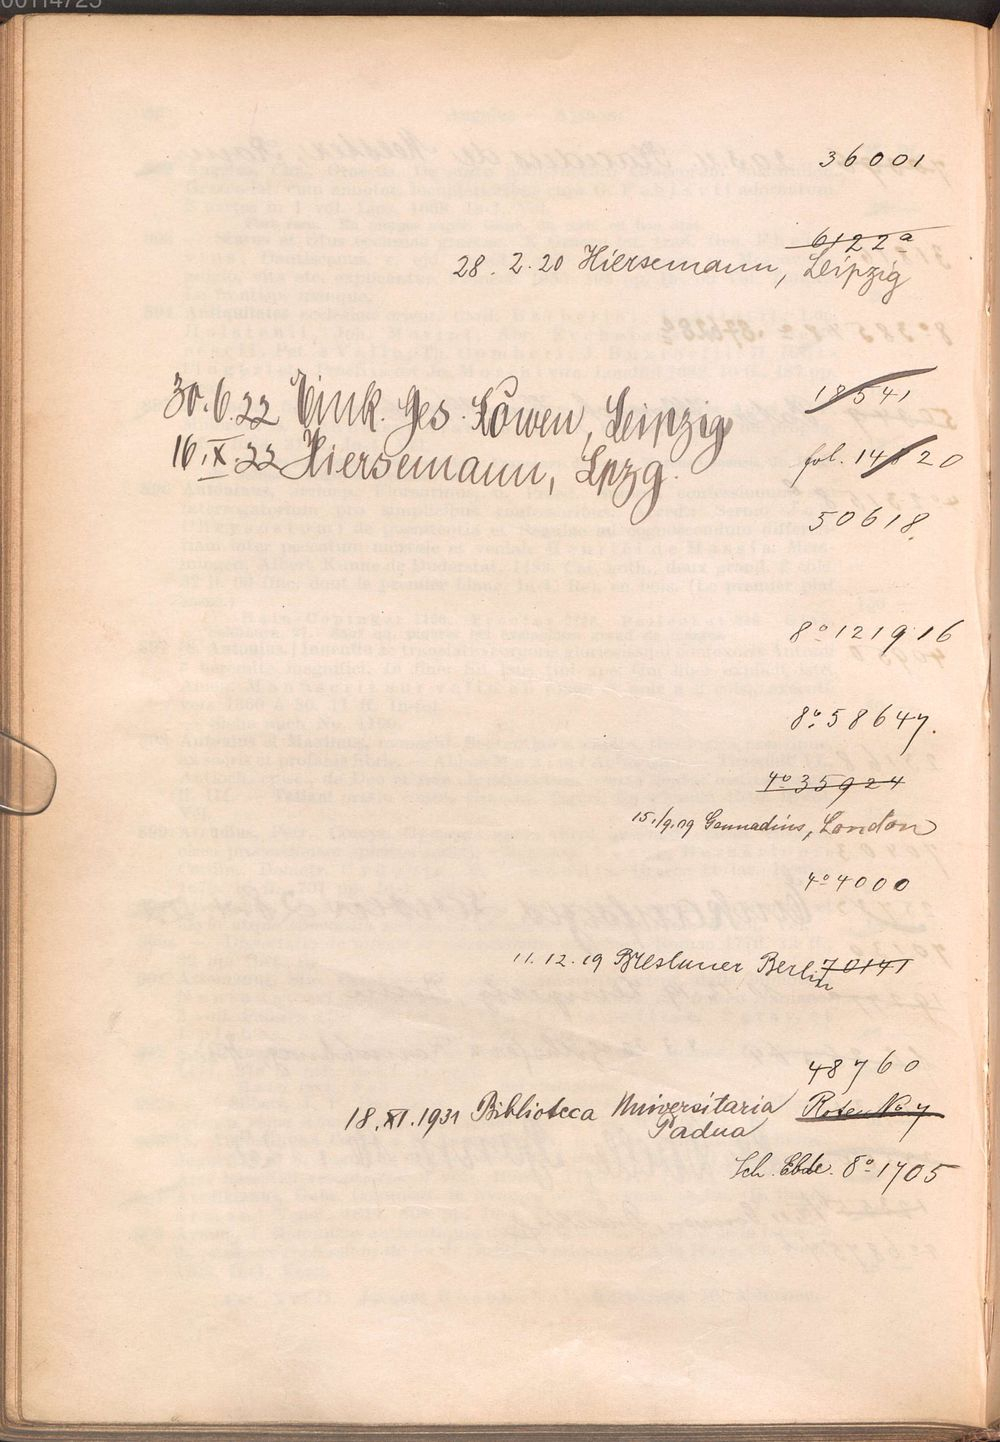 00114725
36001
6122a
28. 2. 20 Hiersemann, Leipzig
18541
30.6.22 Eink. Ges. Löwen, Leipzig
16.IX.22 Hiersemann, Lpzg.
fol. 14120
50618.
8º 121916
8º 58647.
4º 35924
15./9.09 Gennadius, London
4º 4000
11. 12. 19 Breslauer Berlin 70141
48760
18.XI.1931 Biblioteca Universitaria Padua
No 7
Sch. Ebde. 8º 1705